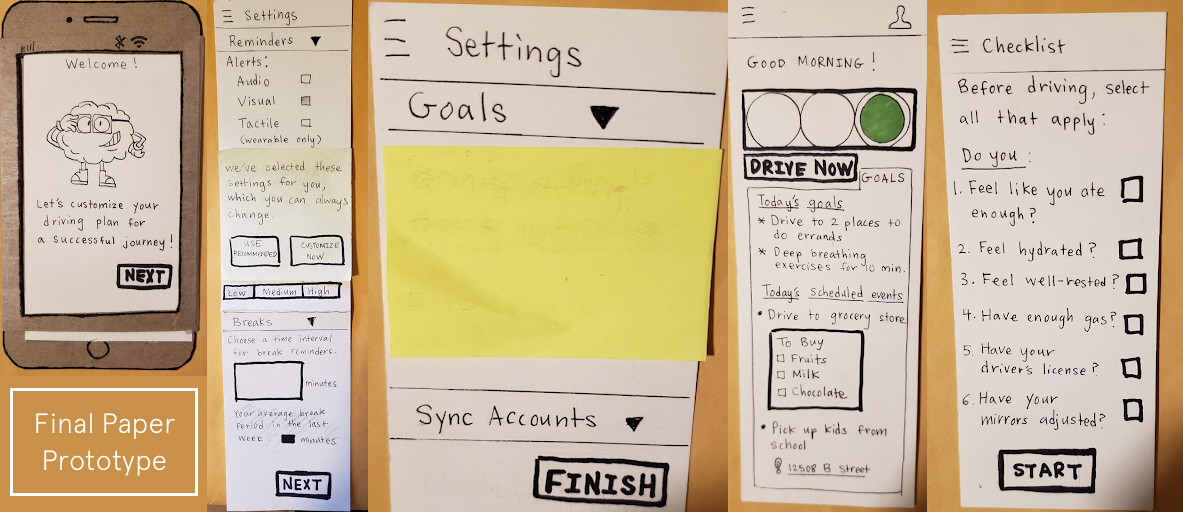 Welcome!
Let's customize your
driving plan for
a successful journey!
NEXT
Final Paper
Prototype
Settings
Reminders
Alerts:
Audio
Visual
Tactile
(wearable only)
we've selected these
settings for you,
which you can always
change.
USE
RECOMMENDED
CUSTOMIZE
NOW
Low Medium High
Breaks
Choose a time interval
for break reminders.
minutes
Your average break
period in the last
week: minutes
NEXT
Settings
Goals
Sync Accounts
FINISH
GOOD MORNING!
DRIVE NOW
GOALS
Today's goals
* Drive to 2 places to
do errands
* Deep breathing
exercises for 10 min.
Today's scheduled events
• Drive to grocery store
To Buy
Fruits
Milk
Chocolate
• Pick up kids from
school
12508 B Street
Checklist
Before driving, select
all that apply:
Do you:
1. Feel like you ate
enough?
2. Feel hydrated?
3. Feel well-rested?
4. Have enough gas?
5. Have your
driver's license?
6. Have your
mirrors adjusted?
START